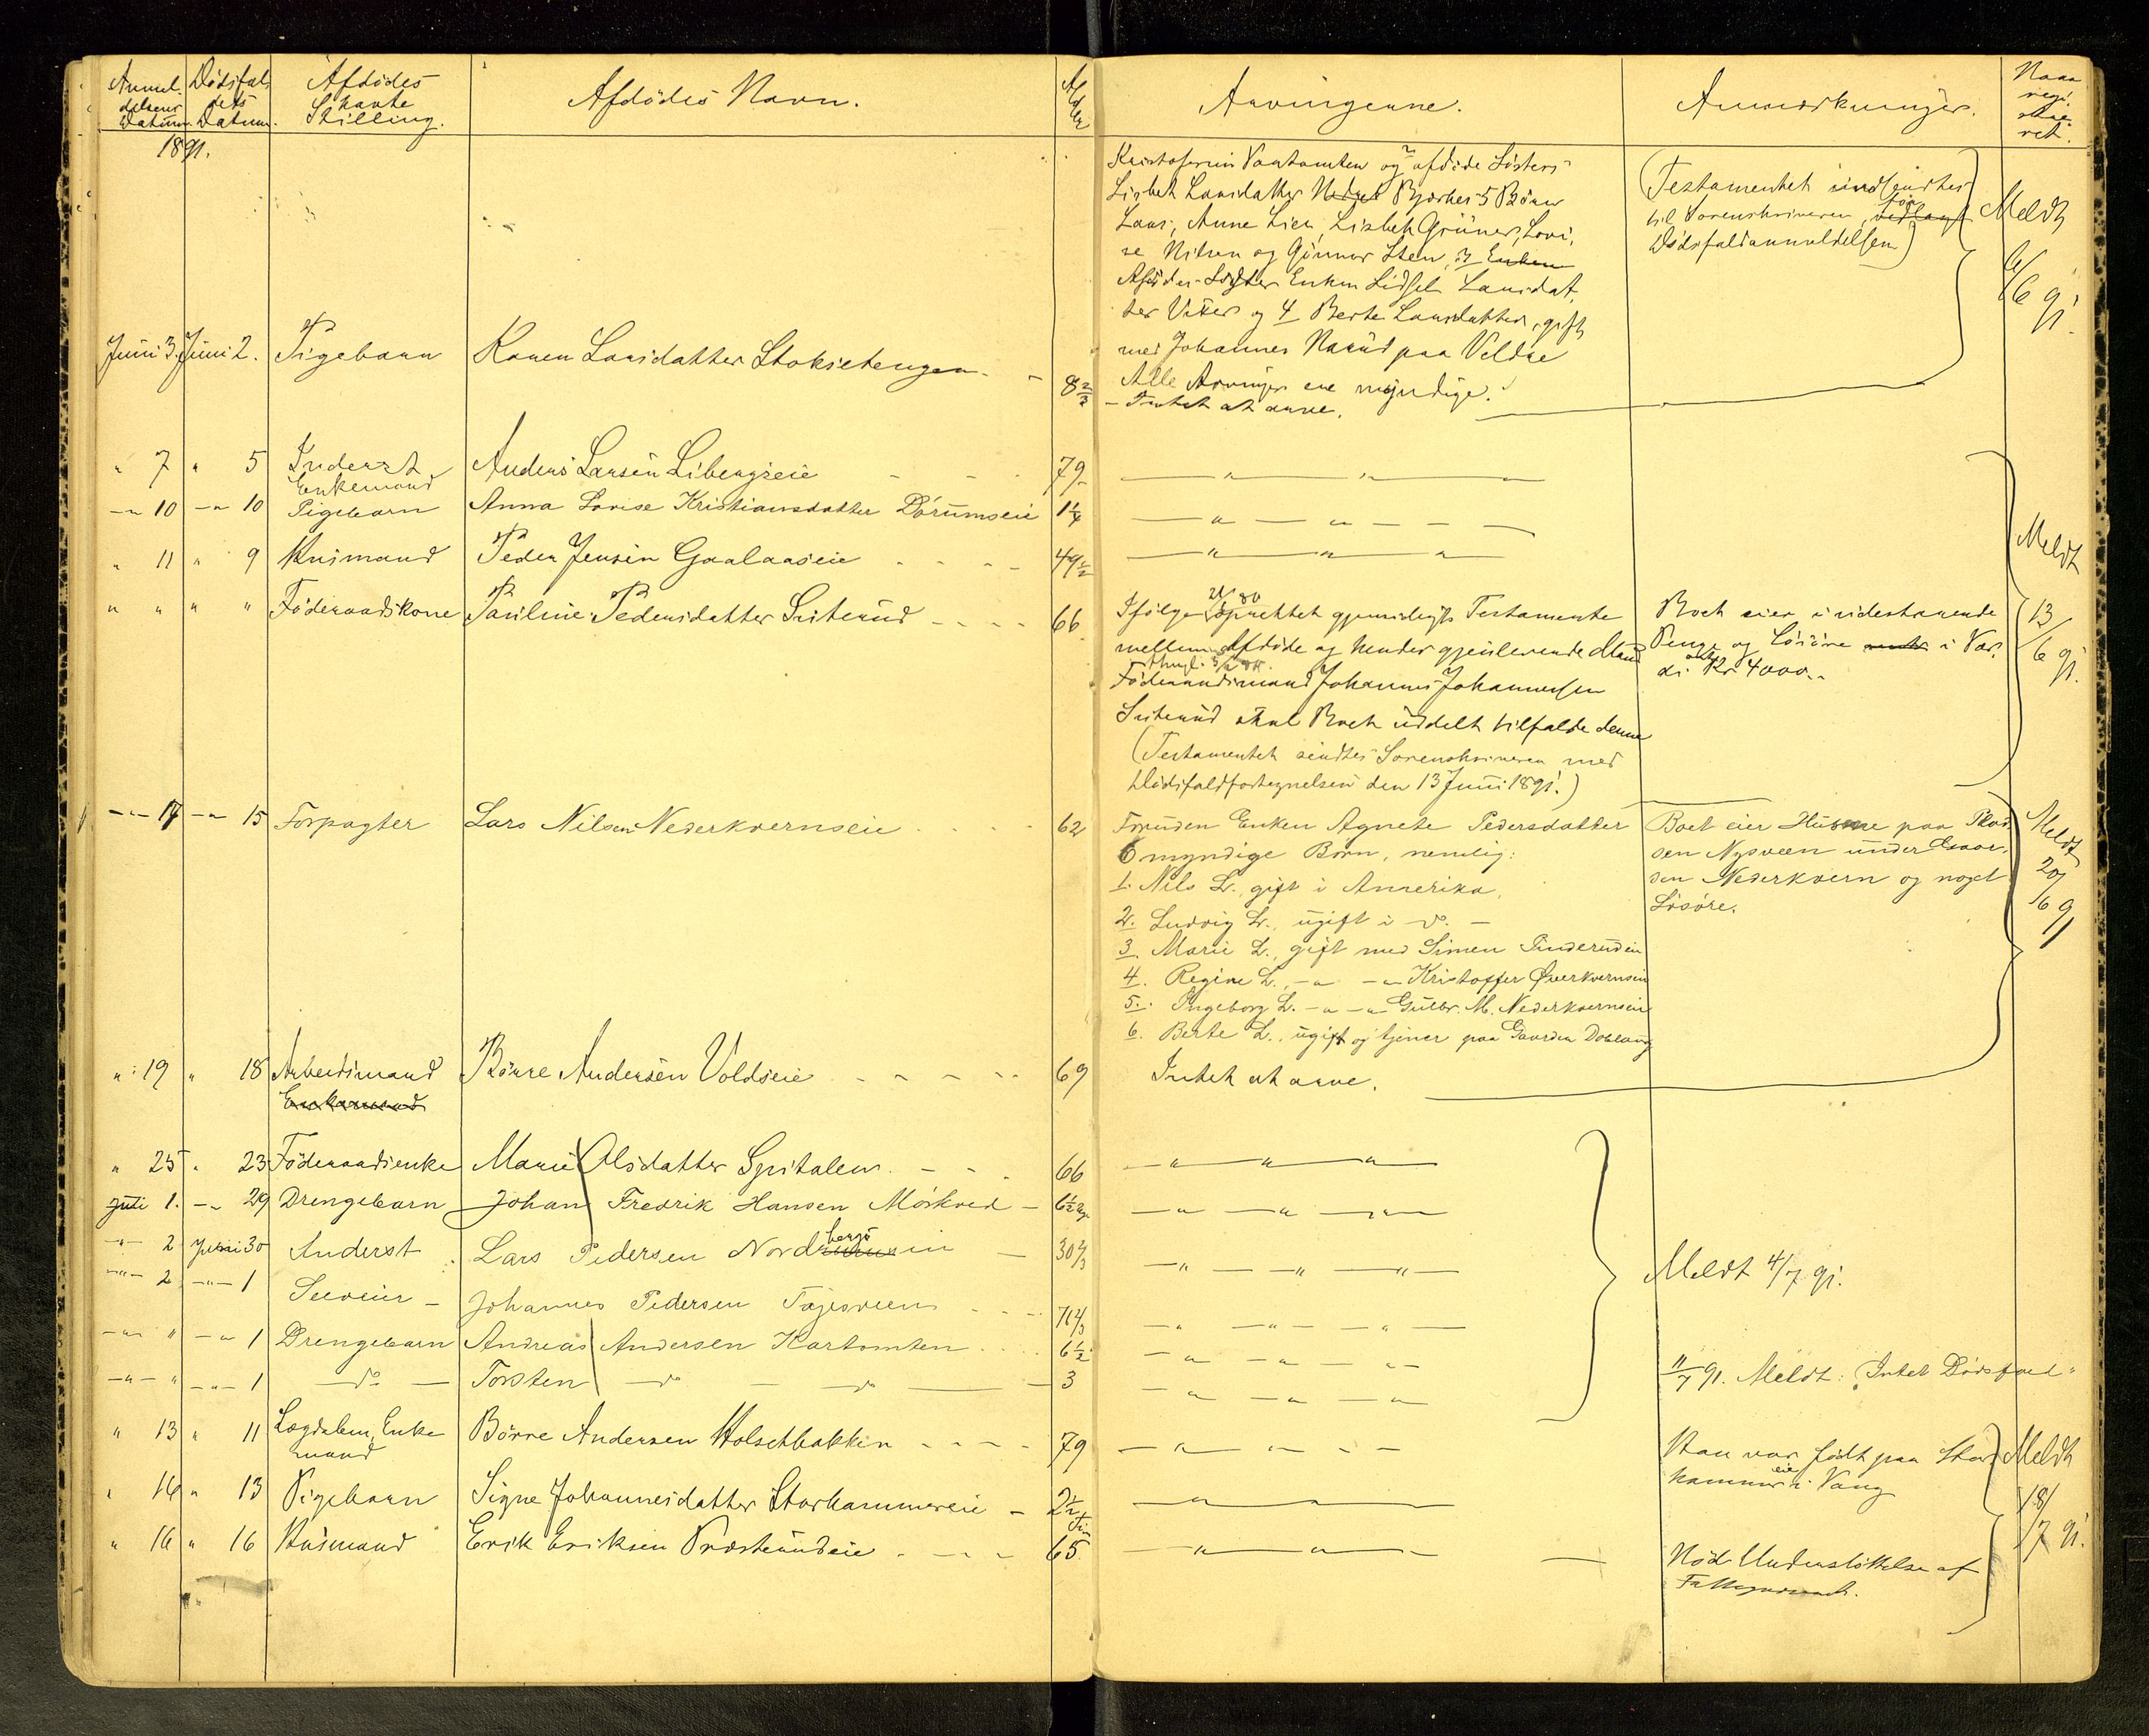 Anmel-
delsens
Datum.
Dødsfal-
dets
Datum.
Afdødes
Stilling.
Afdødes Navn.
Alder
Arvingerne.
Anmærkninger.
Naar
regi-
stre-
ret.
1891.
Kristoferin Vaatomten og 2 afdøde Søsters
Lisbet Larsdatter Bjørkes 5 Børn
Lars, Anne Lien, Lisbeth Grüner, Lovi-
se Nilsen og Gunnar Sten, 3 Enken
Afdødes Søster Enken Larsdat-
ter og 4 Berte Larsdatter, gift
med Johannes Narud paa Veldre
Alle Arvinger ere myndige.
(Testamentet indsendtes
til Sorenskriveren
Dødsfaldanmeldelsen)
Meldt
6/6 91.
Juni 3. Juni 2. Pigebarn Karen Larsdatter Stoksletengen - 8 2/3 - Intet at arve.
" 7 " 5 Inderst Anders Larsen Libergseie - - 79 — " — " —
Enkemand
-"- 10 -"- 10 Pigebarn Anna Lovise Kristiansdatter Dørumseie 1 1/4 — " — " — — —
" 11 " 9 Husmand Peder Jensen Gaalaaseie - - - - 49 1/2 — " — " — " —
Meldt
13/6 91.
" " " " Føderaadskone Pauline Pedersdatter Sviterud - - - - 66
Ifølge oprettet gjensidigt Testamente
mellem Afdøde og hendes gjenlevende Mand
Føderaadsmand Johannes Johannessen
Sviterud skal Boet udelt tilfalde denne
(Testamentet sendtes Sorenskriveren med
Dødsfaldfortegnelsen den 13 Juni 1891.)
Boet eier i udestaaende
Penge og Løsøre i Vær-
di Kr 4000.-
-"- 17 -"- 15 Forpagter Lars Nilsen Nederkvernseie . . . . 62
Foruden Enken Agnete Pedersdatter
6 myndige Børn, nemlig:
1. Nils L. gift i Amerika.
2. Ludvig L., ugift i do. -
3. Marie L., gift med Simen Sinderudeie
4. Regine L., -"- -"- Kristoffer Øverkvernseie
5. Ingeborg L. -"- -"- Gulbr. M. Nederkvernseie
6. Berte L., ugift og tjener paa Gaarden Doblaug
Boet eier Husene paa Plad-
sen Nysveen under Gaar-
den Nederkvern og noget
Løsøre.
Meldt
20/6 91
" 19 " 18 Arbeidsmand Børre Andersen Voldseie - - - - - 69 Intet at arve.
Enkemand
" 25 " 23 Føderaadsenke Marie Olsdatter Spitalen. - - 66 — " — " — " —
Juli 1. -"- 29 Drengebarn Johan Fredrik Hansen Mørkved - 6 1/2 — " — " — " —
-"- 2 Juni 30 Inderst Lars Pedersen Nordbergseie — 30 2/3 — " — — " — " —
-"- 2 -"- 1 Selveier - Johannes Pedersen Tajesveen - - - 71 2/3 — " — " — " —
-"- " -"- 1 Drengebarn Andreas Andersen Kartomten . . . . 6 1/2 — " — " — " —
-"- " -"- 1 — do — Torsten — do — do — 3 — " — " — " —
Meldt 4/7 91.
11/7 91. Meldt: Intet Dødsfald
" 13 " 11 Lægdslem, Enke- Børre Andersen Holsetbakken - - - - 79 — " — " — —
mand
Han var født paa Stor-
hammereie i Vang
Meldt
18/7 91.
" 16 " 13 Pigebarn Signe Johannesdatter Storhammereie - 2 1/2 — " — " —
" 16 " 16 Husmand Erik Eriksen Præsterudeie - - - - 65 — " — " — —
Nød Understøttelse af
Fattigvæsenet.